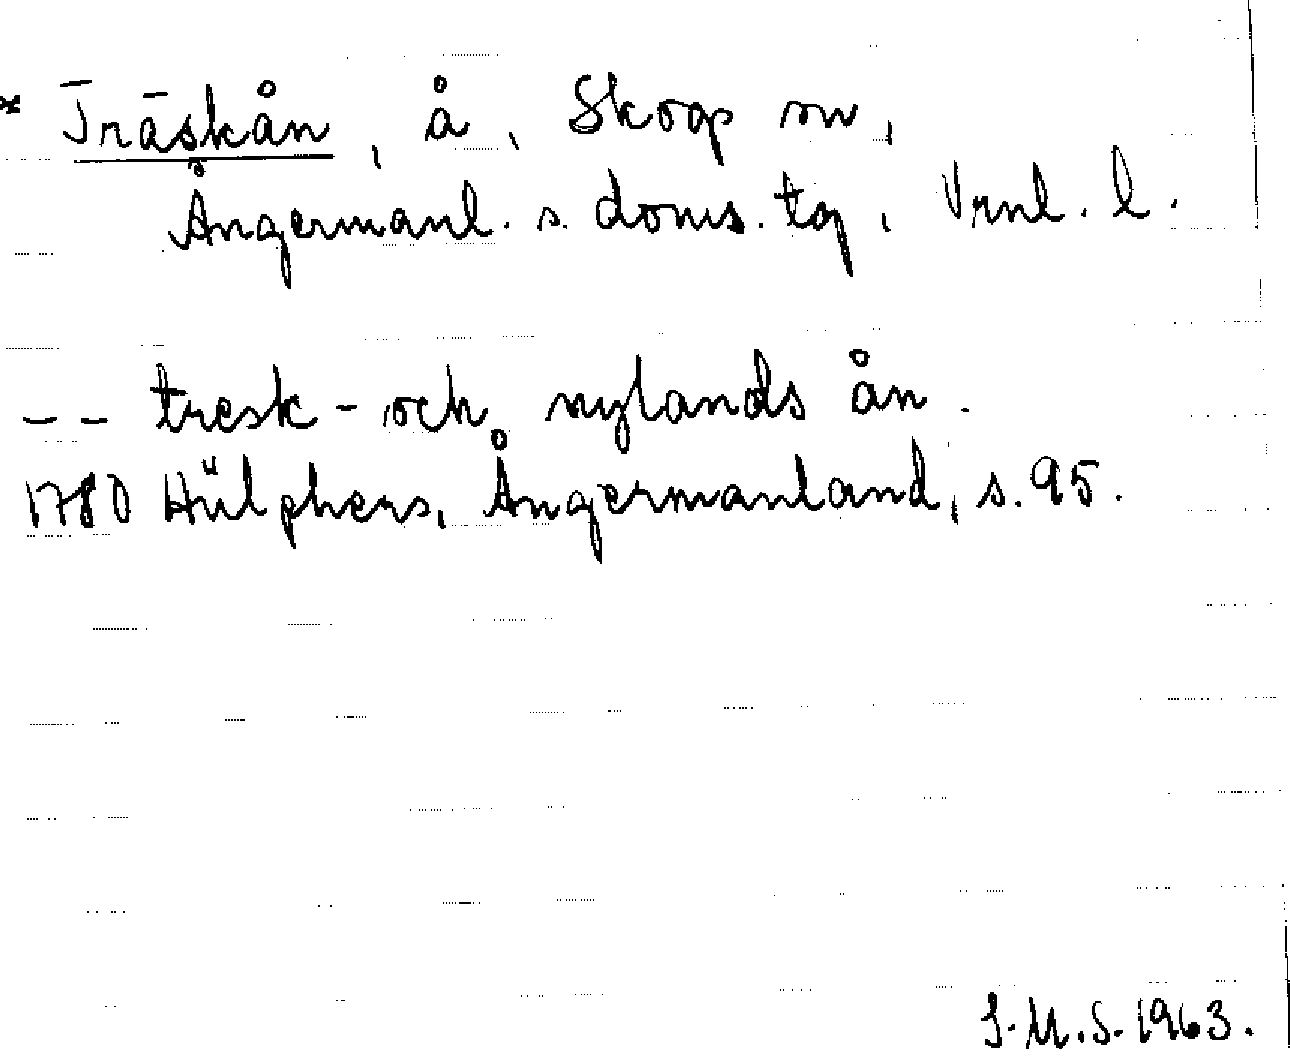 * Träskån, å, Skogs sn,
Ångermanl. s. doms. tg, Vrnl. l.
-- tresk- och nylands ån.
1780 Hülphers, Ångermanland, s. 95.
S.M.S. 1963.